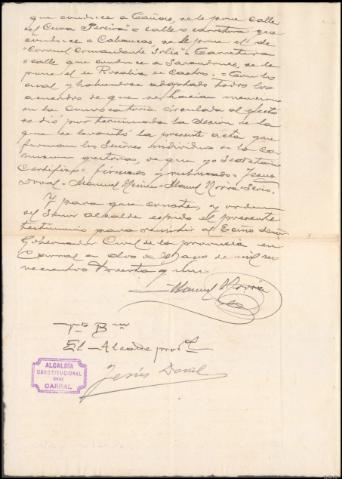 que conduce a Cañás, se le pone calle
del Cura Pereiro a calle o carretera que
conduce a Cabanas, se le pone el de
"Coronel Comandante Solís" a Carretera
o calle que conduce a Tarandones, se le
pone el de Rosalía de Castro.- Con lo
cual y habiéndose adoptado todos los
acuerdos de que se hacían mención
en la Convocatoria circulada al efecto
se dió por terminada la sesión de la
que se levantó la presente acta que
firman los Señores individuos de la Co-
misión gestora, de que yo Secretario
Certifico, firmado y rubricado = Jesús
Doval - Manuel
Y para que conste, y orden
del Señor alcalde expido el presente
testimonio para remitir al Exmo Señor
Gobernador Civil de la provincia en
Carral a dos de Mayo de mil no-
vecientos treinta y uno.
Manuel
Vº Bº
El Alcalde provl
Jesús Doval
ALCALDÍA
CONSTITUCIONAL
DE
CARRAL